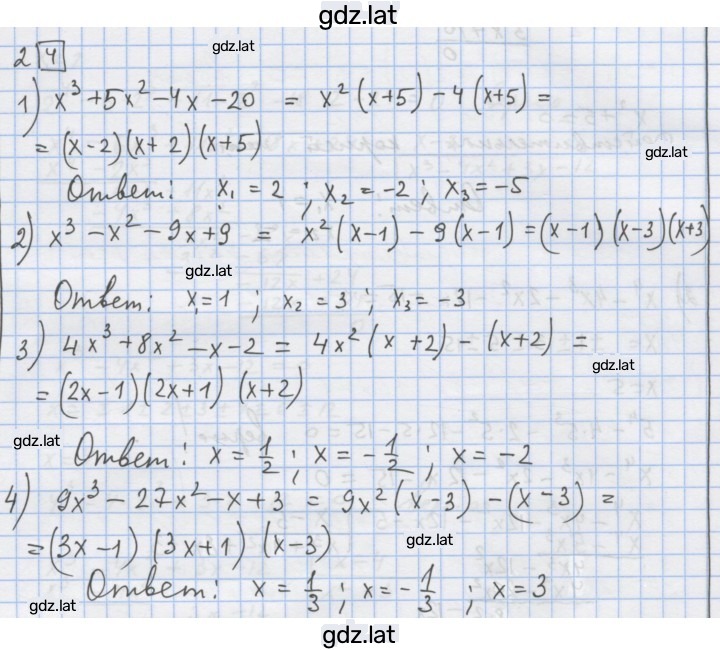 gdz.lat
2 4 gdz.lat
1) x³ + 5x² - 4x - 20 = x² (x+5) - 4 (x+5) =
= (x-2)(x+2)(x+5)
gdz.lat
Ответ: x₁ = 2 ; x₂ = -2 ; x₃ = -5
2) x³ - x² - 9x + 9 = x² (x-1) - 9 (x-1) = (x-1) (x-3)(x+3)
gdz.lat
Ответ: x₁ = 1 ; x₂ = 3 ; x₃ = -3
3) 4x³ + 8x² - x - 2 = 4x² (x+2) - (x+2) =
gdz.lat
= (2x-1)(2x+1) (x+2)
gdz.lat
Ответ: x = 1/2 ; x = -1/2 ; x = -2
4) 9x³ - 27x² - x + 3 = 9x² (x-3) - (x-3) =
= (3x-1) (3x+1) (x-3)
gdz.lat
Ответ: x = 1/3 ; x = -1/3 ; x = 3
gdz.lat
gdz.lat